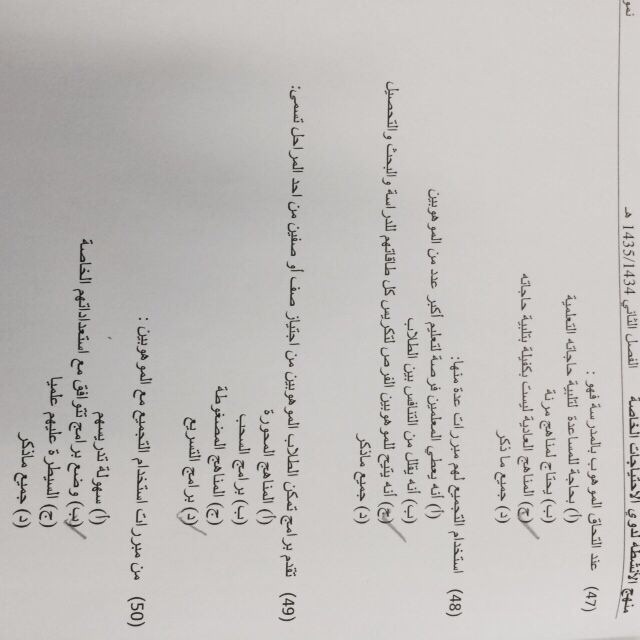 منهج الأنشطة لذوي الاحتياجات الخاصة الفصل الثاني 1435/1434 هـ
(47) عند التحاق الموهوب بالمدرسة فهو :
أ) بحاجة للمساعدة لتلبية حاجاته التعلمية
ب) يحتاج لمناهج مرنة
ج) المناهج العادية ليست بكفيلة بتلبية حاجاته
د) جميع ما ذكر
(48) استخدام التجميع لهم مبررات عدة منها:
أ) أنه يعطي المعلمين فرصة لتعليم أكبر عدد من الموهوبين
ب) أنه يقلل من التنافس بين الطلاب
ج) أنه يتيح للموهوبين الفرص لتكريس كل طاقاتهم للدراسة والبحث والتحصيل
د) جميع ماذكر
(49) تقدم برامج تمكن الطلاب الموهوبين من اجتياز صف أو صفين من احد المراحل تسمى:
أ) المناهج المحورة
ب) برامج السحب
ج) المناهج المضغوطة
د) برامج التسريع
(50) من مبررات استخدام التجميع مع الموهوبين :
أ) سهولة تدريسهم
ب) وضع برامج تتوافق مع استعداداتهم الخاصة
ج) السيطرة عليهم علميا
د) جميع ماذكر